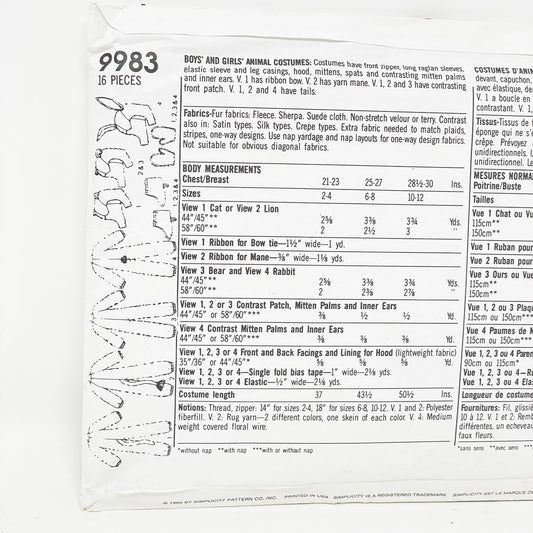 9983
16 PIECES
BOYS' AND GIRLS' ANIMAL COSTUMES: Costumes have front zipper, long raglan sleeves,
elastic sleeve and leg casings, hood, mittens, spats and contrasting mitten palms
and inner ears. V. 1 has ribbon bow. V. 2 has yarn mane. V. 1, 2 and 3 have contrasting
front patch. V. 1, 2 and 4 have tails.
Fabrics-Fur fabrics: Fleece. Sherpa. Suede cloth. Non-stretch velour or terry. Contrast
also in: Satin types. Silk types. Crepe types. Extra fabric needed to match plaids,
stripes, one-way designs. Use nap yardage and nap layouts for one-way design fabrics.
Not suitable for obvious diagonal fabrics.
BODY MEASUREMENTS
Chest/Breast 21-23 25-27 28½-30 Ins.
Sizes 2-4 6-8 10-12
View 1 Cat or View 2 Lion
44"/45"** 2⅝ 3⅜ 3¾ Yds.
58"/60"** 2 2½ 3 "
View 1 Ribbon for Bow tie—1½" wide—1 yd.
View 2 Ribbon for Mane—⅜" wide—1⅛ yds.
View 3 Bear and View 4 Rabbit
44"/45"** 2⅝ 3⅜ 3¾ Yds.
58"/60"** 2 2⅜ 2⅞ "
View 1, 2 or 3 Contrast Patch, Mitten Palms and Inner Ears
44"/45" or 58"/60"*** ⅜ ½ ½ Yd.
View 4 Contrast Mitten Palms and Inner Ears
44"/45" or 58"/60"*** ⅜ ⅜ ⅜ Yd.
View 1, 2, 3 or 4 Front and Back Facings and Lining for Hood (lightweight fabric)
35"/36" or 44"/45"** ⅝ ⅝ ⅝ Yd.
View 1, 2, 3 or 4—Single fold bias tape—1" wide—2⅛ yds.
View 1, 2, 3 or 4 Elastic—½" wide—2⅛ yds.
Costume length 37 43½ 50½ Ins.
Notions: Thread, zipper: 14" for sizes 2-4, 18" for sizes 6-8, 10-12. V. 1 and 2: Polyester
fiberfill. V. 2: Rug yarn—2 different colors, one skein of each color. V. 4: Medium
weight covered floral wire.
*without nap **with nap ***with or without nap
SIMPLICITY PATTERN CO. INC. PRINTED IN USA SIMPLICITY IS A REGISTERED TRADEMARK SIMPLICITY EST LA MARQUE
COSTUMES D'ANI
devant, capuchon,
avec élastique, de
V. 1 a boucle en
contrastant. V. 1,
Tissus-Tissus de f
éponge qui ne s'
crêpe. Prévoyez
unidirectionnels. L
unidirectionnel. Le
MESURES NORMA
Poitrine/Buste
Tailles
Vue 1 Chat ou Vu
115cm**
150cm**
Vue 1 Ruban pour
Vue 2 Ruban pour
Vue 3 Ours ou Vue
115cm**
150cm**
Vue 1, 2 ou 3 Plaq
115cm ou 150cm***
Vue 4 Paumes de M
115cm ou 150cm***
Vue 1, 2, 3 ou 4 Paren
90cm ou 115cm**
Vue 1, 2, 3 ou 4—Ru
Vue 1, 2, 3 ou 4 Elas
Longueur de costume
Fournitures: Fil, glissiè
10 à 12. V. 1 et 2: Remb
différentes, un écheveau
faux fleurs.
*sans sens **avec sens